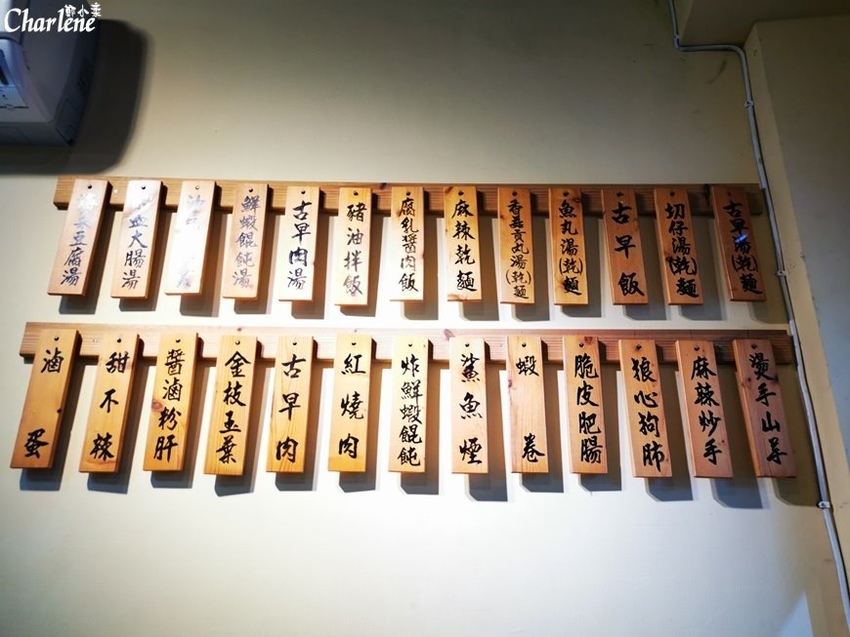 Charlene
古早湯(乾)麵
切仔湯(乾)麵
古早飯
魚丸湯(乾)麵
香菇貢丸湯(乾)麵
麻辣乾麵
腐乳醬肉飯
豬油拌飯
古早肉湯
鮮蝦餛飩湯
血大腸湯
菜豆腐湯
燙手山芋
麻辣炒手
狼心狗肺
脆皮肥腸
蝦卷
鯊魚煙
炸鮮蝦餛飩
紅燒肉
古早肉
金枝玉葉
醬滷粉肝
甜不辣
滷蛋